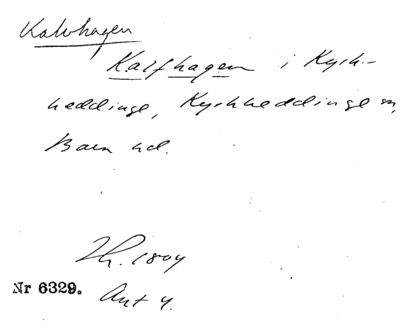 Kalvhagen
Kalfhagen i Kyrk-
heddinge, Kyrkheddinge sn,
Bara hd.
Th. 1804
Nr 6329. Ant 4.